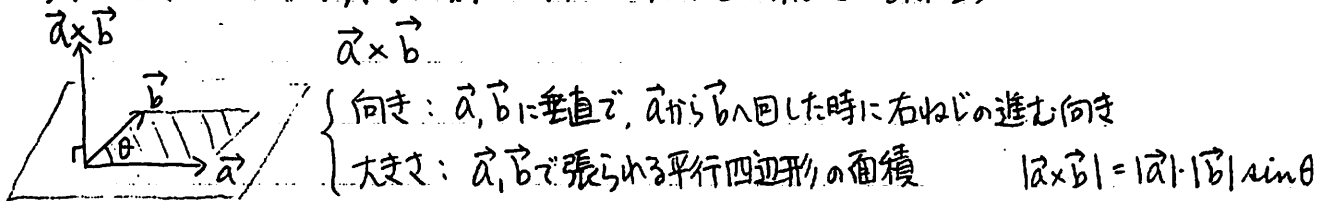 $\vec{a}\times\vec{b}$
$\vec{a}\times\vec{b}$
$\vec{b}$
向き：$\vec{a},\vec{b}$に垂直で，$\vec{a}$から$\vec{b}$へ回した時に右ねじの進む向き
θ
$\vec{a}$
大きさ：$\vec{a},\vec{b}$で張られる平行四辺形の面積　$|\vec{a}\times\vec{b}|=|\vec{a}|\cdot|\vec{b}|\sin\theta$